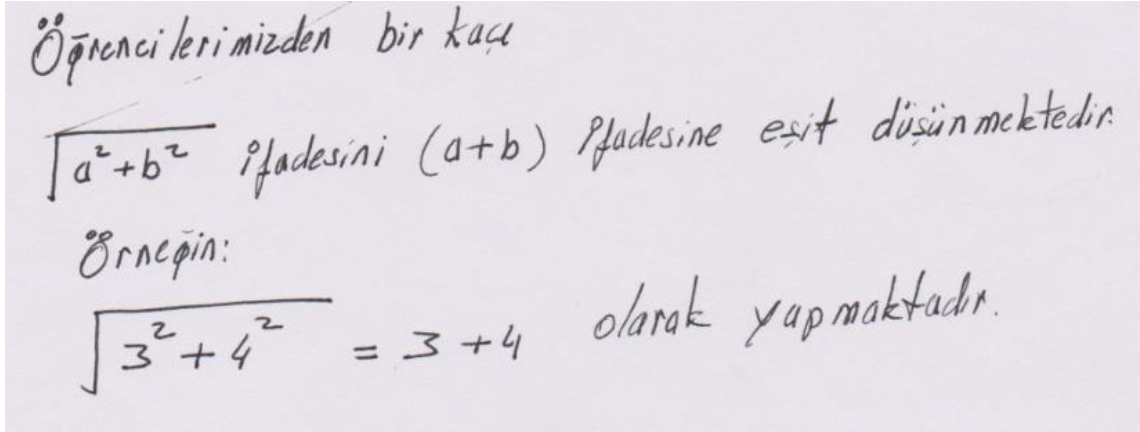 Öğrencilerimizden bir kaçı
√a²+b² ifadesini (a+b) ifadesine eşit düşünmektedir.
Örneğin:
√3²+4² = 3+4 olarak yapmaktadır.